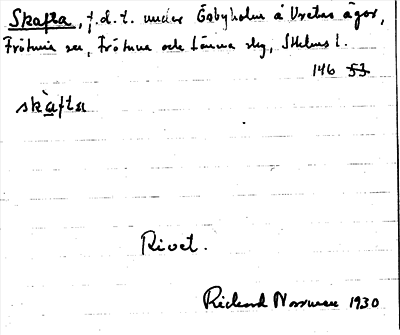 Skafta, f.d.t. under Edbyholm å Vretas ägor,
Frötuna sn, Frötuna och Länna slg, Sthlms l.
146 53
skàfta
Rivet.
Rickard Norrman 1930